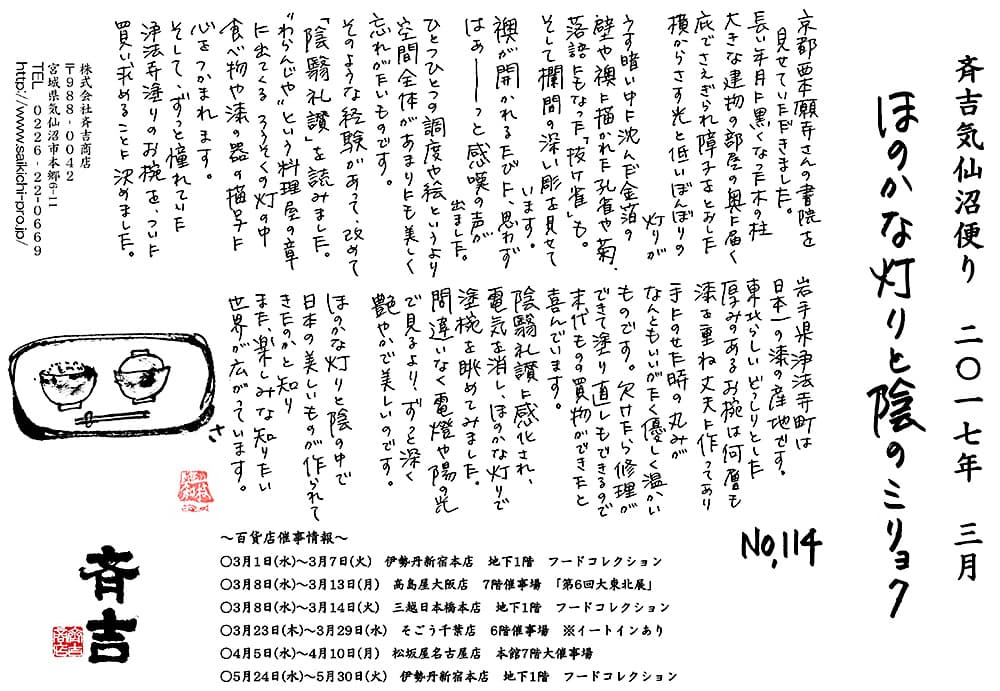 斉吉気仙沼便り 二〇一七年 三月
ほのかな灯りと陰のミリョク
No,114
京都西本願寺さんの書院を
見せていただきました。
長い年月に黒くなった木の柱
大きな建物の部屋の奥に届く
庇でさえぎられ障子をとおした
横からさす光と低いぼんぼりの
灯りが
うす暗い中に沈んだ金箔の
壁や襖に描かれた孔雀や菊、
落語にもなった「抜け雀」も。
そして欄間の深い彫を見せて
います。
襖が開かれるたびに、思わず
はぁ――っと感嘆の声が
出ました。
ひとつひとつの調度や絵というより
空間全体があまりにも美しく
忘れがたいものです。
そのような経験があって、改めて
「陰翳礼讃」を読みました。
“わらんじや”という料理屋の章
に出てくる ろうそくの灯の中
食べ物や漆の器の描写に
心をつかまれます。
そして、ずっと憧れていた
浄法寺塗りのお椀を、ついに
買い求めることに決めました。
岩手県浄法寺町は
日本一の漆の産地です。
東北らしいどっしりとした
厚みのあるお椀は何層も
漆を重ね丈夫に作ってあり
手にのせた時の丸みが
なんともいいがたく優しく温かい
ものです。欠けたら修理が
できて塗り直しもできるので
末代ものの買物ができたと
喜んでいます。
陰翳礼讃に感化され、
電気を消し、ほのかな灯りで
塗椀を眺めてみました。
間違いなく電燈や陽の光
で見るより、ずっと深く
艶やかで美しいのです。
ほのかな灯りと陰の中で
日本の美しいものが作られて
きたのかと知り
また、楽しみな知りたい
世界が広がっています。
さ
株式会社斉吉商店
〒988-0042
宮城県気仙沼市本郷6-11
TEL 0226-22-0669
http://www.saikichi-pro.jp/
～百貨店催事情報～
〇3月1日(水)～3月7日(火) 伊勢丹新宿本店 地下1階 フードコレクション
〇3月8日(水)～3月13日(月) 高島屋大阪店 7階催事場 「第6回大東北展」
〇3月8日(水)～3月14日(火) 三越日本橋本店 地下1階 フードコレクション
〇3月23日(木)～3月29日(水) そごう千葉店 6階催事場 ※イートインあり
〇4月5日(水)～4月10日(月) 松坂屋名古屋店 本館7階大催事場
〇5月24日(水)～5月30日(火) 伊勢丹新宿本店 地下1階 フードコレクション
斉吉